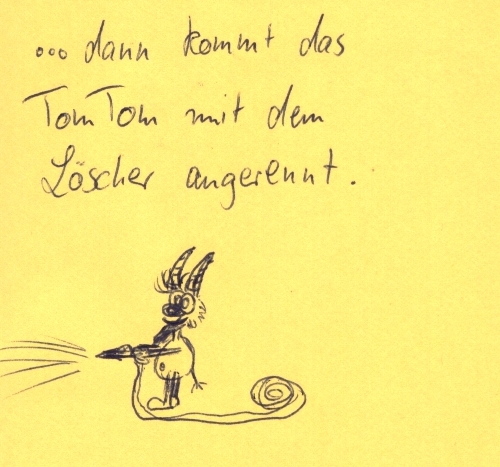 ...dann kommt das
TomTom mit dem
Löscher angerennt.